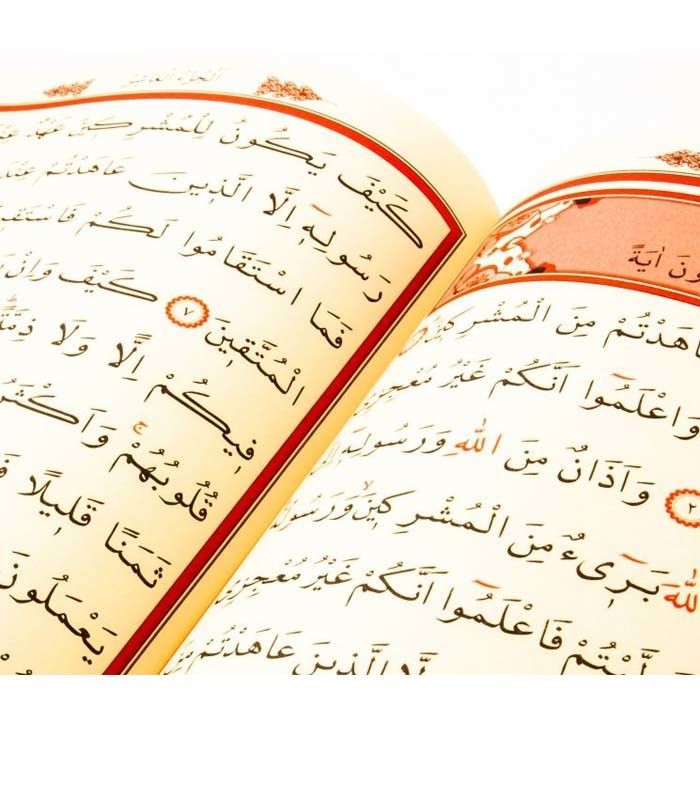 ونَ اٰيَةً
اهَدْتُمْ مِنَ الْمُشْرِكٖينَ
وَاعْلَمُٓوا اَنَّكُمْ غَيْرُ مُعْجِزِي
وَاَذَانٌ مِنَ اللّٰهِ وَرَسُولِهٖٓ
٢
اللّٰهَ بَرٖٓيءٌ مِنَ الْمُشْرِكٖينَۙ وَرَسُولُ
لَّيْتُمْ فَاعْلَمُٓوا اَنَّكُمْ غَيْرُ مُعْجِزِي
لَّا الَّذٖينَ عَاهَدْتُمْ مِنَ
اَلْجُزْءُ الْعَاشِرُ
كَيْفَ يَكُونُ لِلْمُشْرِكٖينَ عَهْدٌ عِنْدَ
رَسُولِهٖٓ اِلَّا الَّذٖينَ عَاهَدْتُمْ عِنْدَ
فَمَا اسْتَقَامُوا لَكُمْ فَاسْتَقٖي
الْمُتَّقٖينَ ٧ كَيْفَ وَاِنْ
فٖيكُمْ اِلًّا وَلَا ذِمَّةً
قُلُوبُهُمْۚ وَاَكْثَرُ
ثَمَنًا قَلٖيلًا فَ
يَعْمَلُونَ